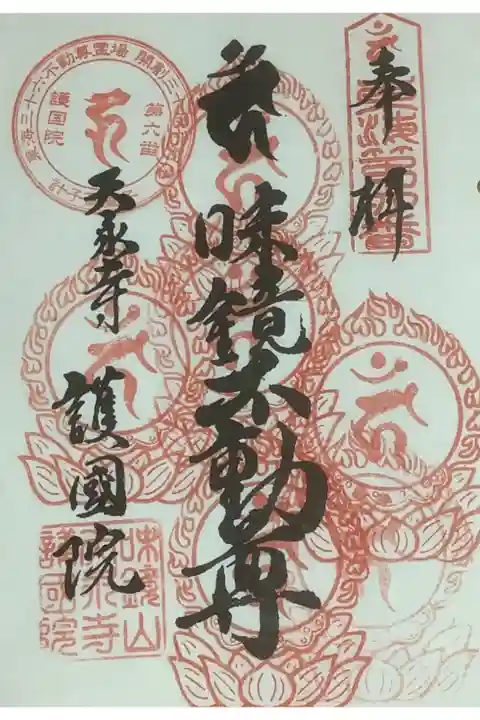 奉拝
味鏡不動尊
天永寺
護國院
東海三十六不動尊霊場 開創三十
第六番
護国院
味鏡山
天永寺
護国院